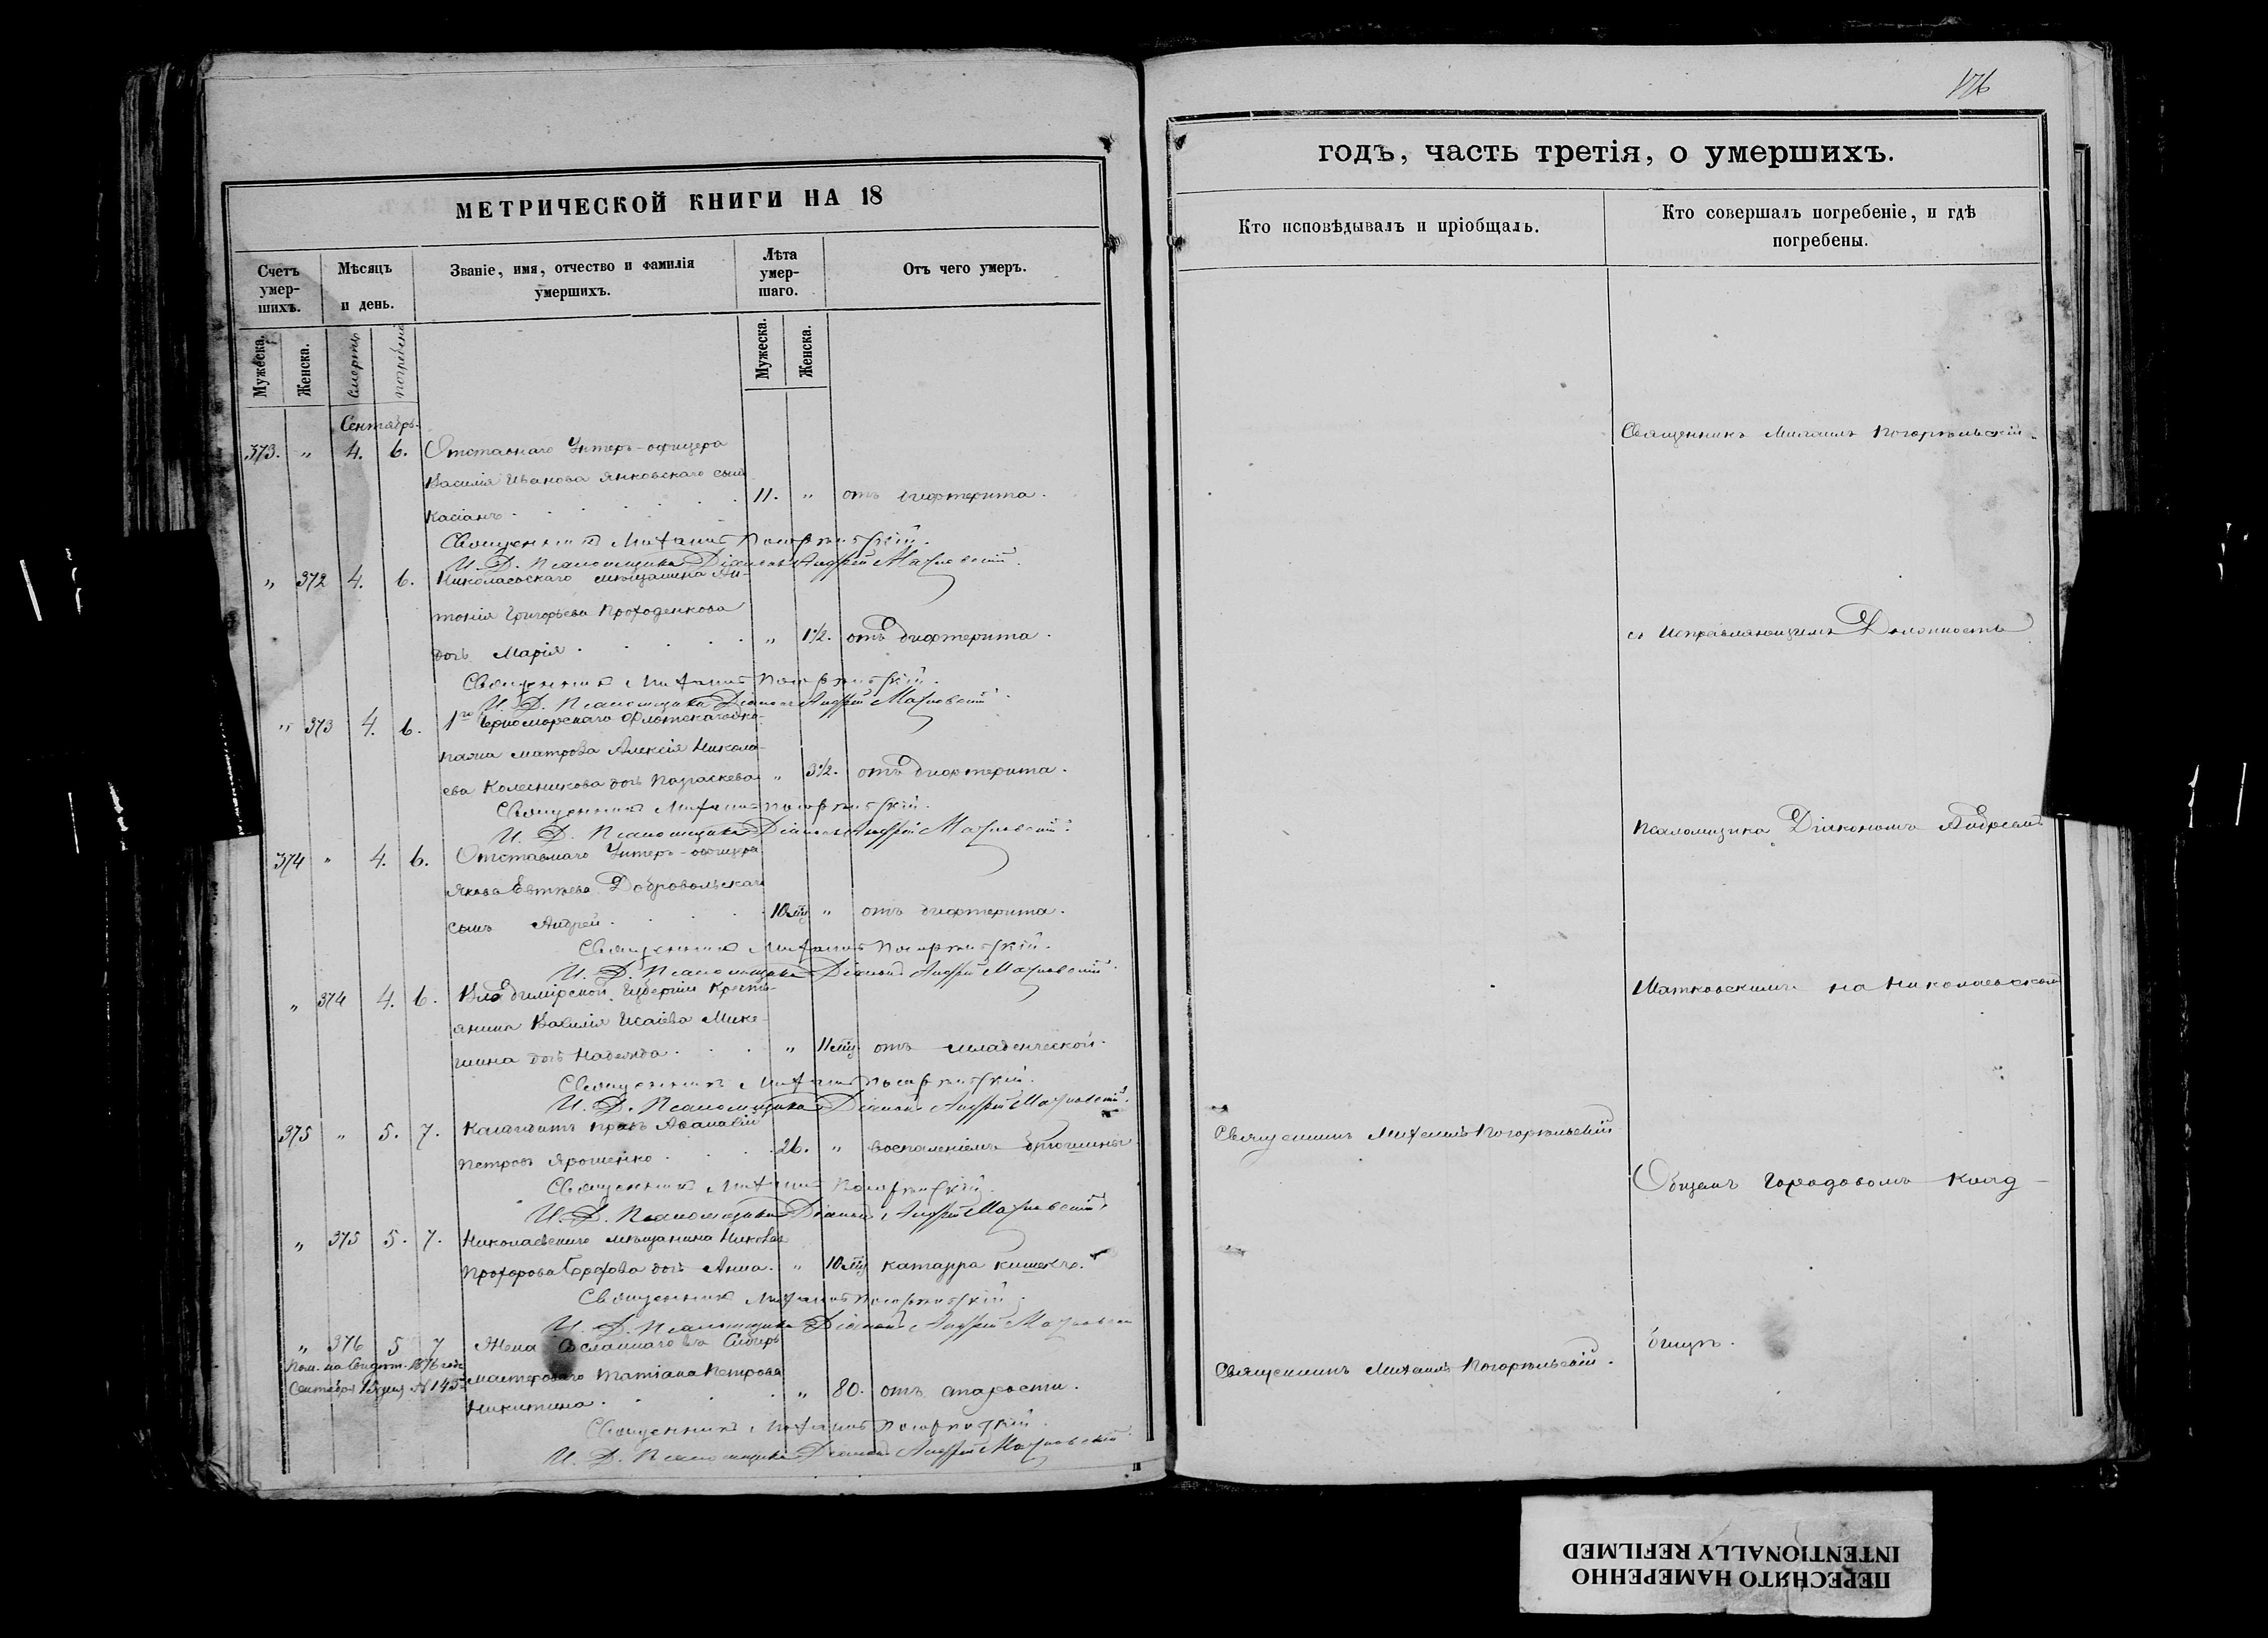 МЕТРИЧЕСКОЙ КНИГИ НА 18
Счетъ умер-шихъ.
Мѣсяцъ и день.
Званіе, имя, отчество и фамилія умершихъ.
Лѣта умер-шаго.
Отъ чего умеръ.
Мужеска.
Женска.
Смерти
погребенія
Мужеска.
Женска.
Сентябрь.
373. " 4. 6. Отставнаго Унтеръ-офицера
Василія Иванова Янковскаго сынъ
Касіанъ. 11. " отъ дифтерита.
Священникъ Михаилъ Погорѣльскій.
И. Д. Псаломщика Діаконъ Андрей
" 372 4. 6. Николаевскаго мѣщанина Ан-
тонія Григорьева Проходенкова
дочь Марія. " 1½. отъ дифтерита.
Священникъ Михаилъ Погорѣльскій.
И. Д. Псаломщика Діаконъ Андрей
" 373 4. 6. 1го Черноморскаго Флотскаго эки-
пажа матроза Алексія Никола-
ева Колесникова дочь Параскева " 3½. отъ дифтерита.
Священникъ Михаилъ Погорѣльскій.
И. Д. Псаломщика Діаконъ Андрей
374 " 4. 6. Отставнаго Унтеръ-офицера
Якова Добровольскаго
сынъ Андрей. 10 " отъ дифтерита.
Священникъ Михаилъ Погорѣльскій.
И. Д. Псаломщика Діаконъ Андрей
" 374 4. 6. Владимірской Губерніи крестьянина
Василія Исаіева Мике-
шина дочь Надежда. " 11 отъ младенческой.
Священникъ Михаилъ Погорѣльскій.
И. Д. Псаломщика Діаконъ Андрей
375 " 5. 7. Кандидатъ правъ Аѳанасій
Петровъ Ярошенко. 26. " воспаленіемъ брюшины
Священникъ Михаилъ Погорѣльскій.
И. Д. Псаломщика Діаконъ Андрей
" 375 5. 7. Николаевскаго мѣщанина
Прохорова дочь Анна. " 10 катарра кишекъ.
Священникъ Михаилъ Погорѣльскій.
И. Д. Псаломщика Діаконъ Андрей
" 376 5 7 Жена сосланнаго въ Сибирь
мастероваго Татіана Петрова
Никитина. " 80. отъ старости.
Священникъ Михаилъ Погорѣльскій.
И. Д. Псаломщика Діаконъ Андрей
годъ, часть третія, о умершихъ.
Кто исповѣдывалъ и пріобщалъ.
Кто совершалъ погребеніе, и гдѣ погребены.
Священникъ Михаилъ Погорѣльскій
съ Исправляющимъ Должность
Псаломщика Діакономъ Андреемъ
на Николаевскомъ
Священникъ Михаилъ Погорѣльскій
Общемъ Городовомъ Клад-
бищѣ.
Священникъ Михаилъ Погорѣльскій.
ПЕРЕСНЯТО НАМЕРЕННО
INTENTIONALLY REFILMED